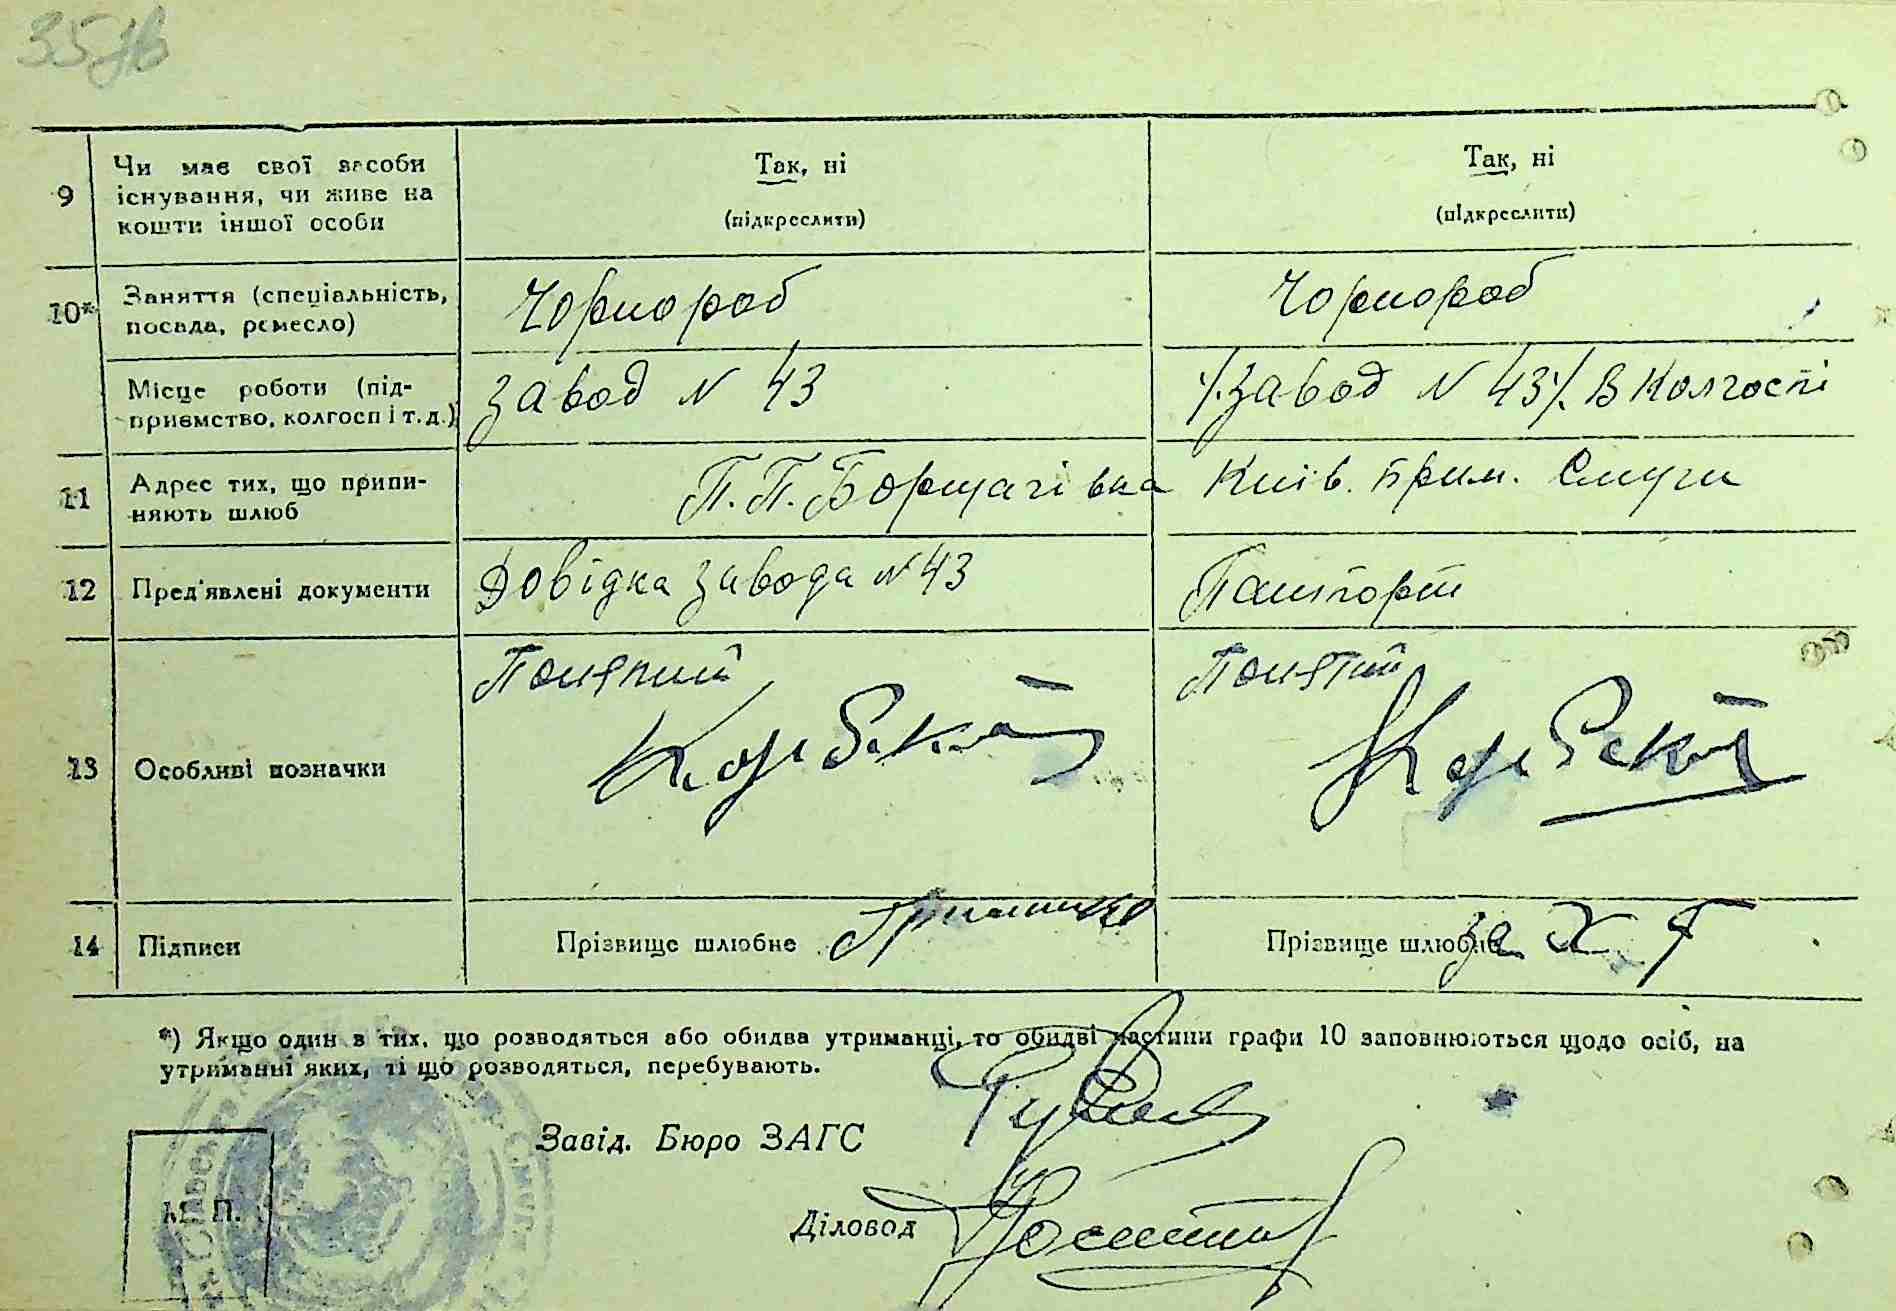 35зв
9 Чи має свої засоби
існування, чи живе на
кошти іншої особи
Так, ні
(підкреслити)
Так, ні
(підкреслити)
10* Заняття (спеціальність,
посада, ремесло)
Чорнороб
Чорнороб
Місце роботи (під-
приємство, колгосп і т. д.)
Завод N 43
/.Завод N 43/. В Колгоспі
11 Адрес тих, що припи-
няють шлюб
П.П.Борщагівка Київ. прим. Смуги
12 Пред'явлені документи
Довідка завода N 43
Пашпорт
13 Особливі позначки
14 Підписи
Прізвище шлюбне
Прізвище шлюбне за Х Г
*) Якщо один з тих, що розводяться або обидва утриманці, то обидві частини графи 10 заповнюються щодо осіб, на
утриманні яких, ті що розводяться, перебувають.
Завід. Бюро ЗАГС
М. П.
Діловод